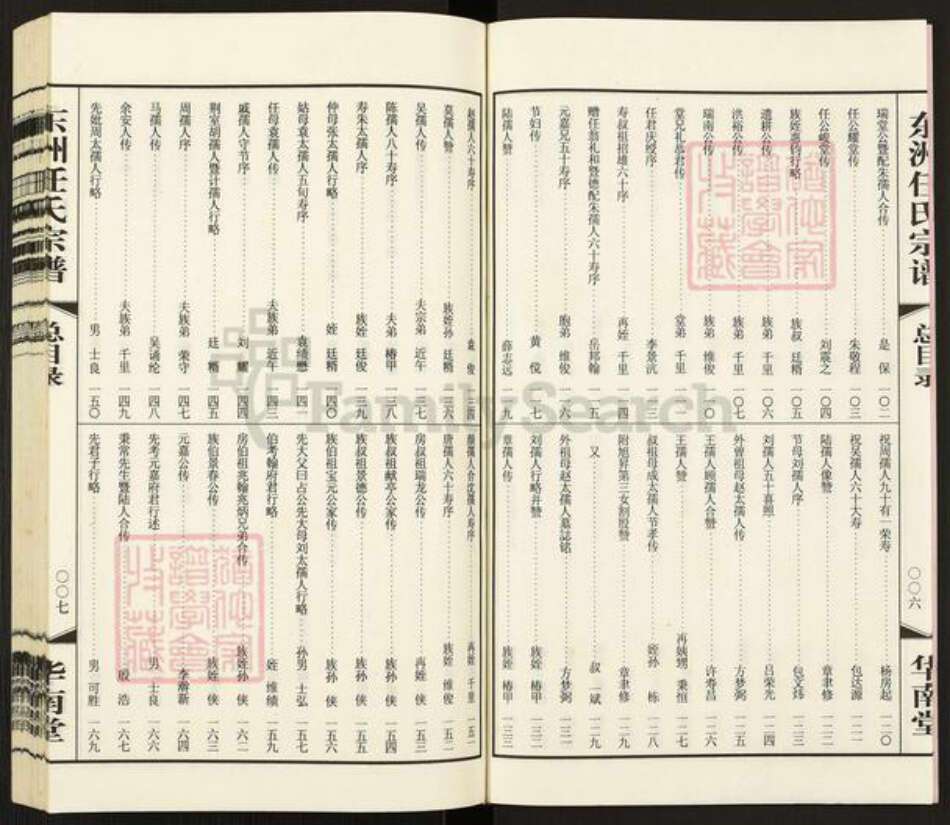 东洲任氏宗谱
总目录
〇〇六
华南堂
瑞堂公暨配朱孺人合传 是保 一〇二
任公耀堂传 朱敬程 一〇三
任公巘堂传 刘震之 一〇四
族叔 廷楷 一〇五
遗耕公传 族弟 千里 一〇六
洪裕公传 族弟 维俊 一〇七
瑞南公传 族弟 维俊
堂弟 千里
任君庆绶序 李景沆 一一三
寿叔祖招雄六十序 再姪 千里 一一四
赠任翁礼和暨德配朱孺人六十寿序 岳邦翰 一一五
元嘉兄五十寿序 胞弟 维俊 一一六
节妇传 黄傥 一一七
陆孺人赞 薛志远 一一九
祝周孺人九十有一荣寿 杨房起 一二〇
祝吴孺人六十大寿 包达源 一二一
陆孺人像赞 章聿修 一二二
节母刘孺人序 包文炜 一二三
刘孺人五十喜照 吕荣光 一二四
外曾祖母赵太孺人传 方梦弼 一二五
王孺人顾孺人合赞 许希昌 一二六
王孺人赞 再姨甥 秉恒 一二七
叔祖母成太孺人节孝传 姪孙 栋 一二八
附旭昇第三女割股赞 章聿修 一二九
又 叔 一斌 一二九
外祖母赵太孺人墓誌铭 方梦弼 一三一
刘孺人行略并赞 族姪 椿甲 一三二
章孺人传 族姪 椿甲 一三三
赵孺人六十寿序 袁俊 一三四
莫孺人赞 族姪孙 廷楷 一三六
吴孺人传 夫宗弟 近午 一三七
陈孺人八十寿序 夫弟 椿甲 一三八
寿朱太孺人序 族姪 廷俊 一三九
仲母张太孺人行略 姪 廷楷 一四〇
姑母袁太孺人五旬寿序 袁绩懋 一四一
任母袁孺人传 夫族弟 近午 一四三
戚孺人守节序 刘耀 一四四
荆室胡孺人暨计孺人行略 廷楷 一四五
周孺人序 夫族弟 荣守 一四七
马孺人传 吴诵纶 一四八
余安人传 夫族弟 千里 一四九
先妣周太孺人行略 男 士良 一五〇
再姪 千里 一五一
唐孺人六十寿序 族姪 维俊 一五二
房叔祖瑞龙公传 再姪 侠 一五三
族叔祖献亭公家传 族孙 侠 一五四
族叔祖景德公传 族孙 侠 一五五
族伯祖宝元公家传 族孙 侠 一五六
先大父曰占公先大母刘太孺人行略 孙男 士弘 一五七
伯考翰府君行略 姪 维绩 一五九
房伯祖兆翰兆炳兄弟合传 族姪孙 侠 一六二
族伯景春公传 族姪 侠 一六三
元嘉公传 李瀚新 一六四
先考元嘉府君行述 男 士良 一六六
秉常先生暨陆人合传 殷浩 一六七
先君子行略 男 可胜 一六九
东洲任氏宗谱
总目录
〇〇七
华南堂
FamilySearch